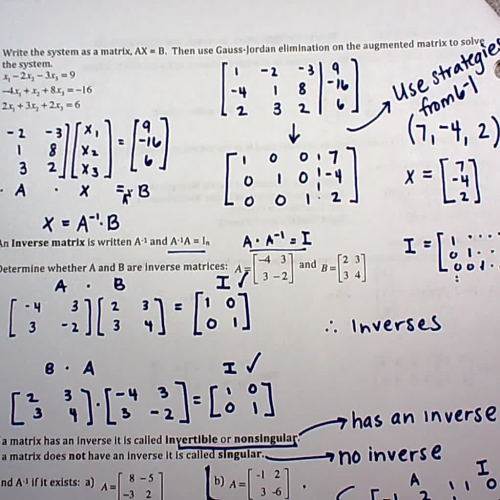 Write the system as a matrix, AX = B. Then use Gauss-Jordan elimination on the augmented matrix to solve
the system.
x₁ - 2x₂ - 3x₃ = 9
-4x₁ + x₂ + 8x₃ = -16
2x₁ + 3x₂ + 2x₃ = 6
[1 -2 -3 | 9
-4 1 8 | -16
2 3 2 | 6]
Use strategies
from 6-1
(7, -4, 2)
-2 -3] [x₁ = [9
1 8 x₂ -16
3 2] x₃] 6]
· A · X = B
A⁻¹
[1 0 0 ⋮ 7
0 1 0 ⋮ -4
0 0 1 ⋮ 2]
X = [7
-4
2]
X = A⁻¹·B
An Inverse matrix is written A⁻¹ and A⁻¹A = Iₙ
A · A⁻¹ = I
I = [1 . . . .
0 1 . .
0 0 1 . .
Determine whether A and B are inverse matrices: A = [-4 3 and B = [2 3
3 -2] 3 4]
A · B I ✓
[-4 3 [2 3 = [1 0
3 -2] 3 4] 0 1]
∴ Inverses
B · A I ✓
[2 3 · [-4 3 = [1 0
3 4] 3 -2] 0 1]
a matrix has an inverse it is called invertible or nonsingular.
→ has an inverse
a matrix does not have an inverse it is called singular.
→ no inverse
nd A⁻¹ if it exists: a) A = [8 -5 b) A = [-1 2
-3 2 3 -6]
A I